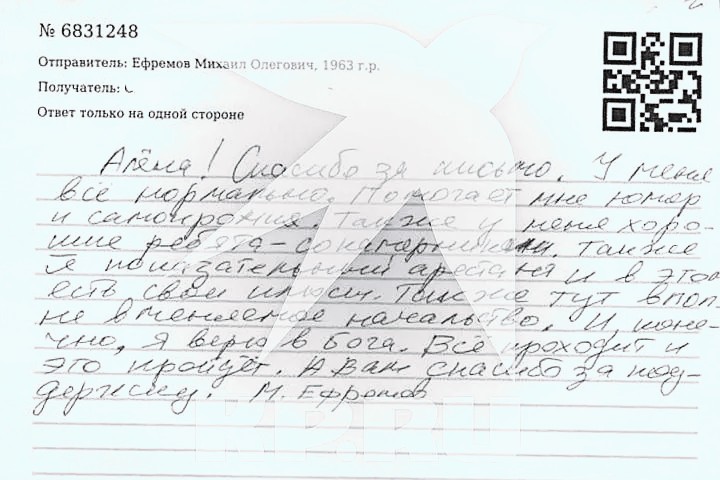 № 6831248
Отправитель: Ефремов Михаил Олегович, 1963 г.р.
Получатель:
Ответ только на одной стороне
Алёна! Спасибо за письмо. У меня
всё нормально. Помогает мне юмор
и самоирония. Также у меня хоро-
шие ребята - сокамерники. Также
я показательный арестант и в этом
есть свои плюсы. Также тут впол-
не вменяемое начальство. И, коне-
чно, я верю в Бога. Всё проходит и
это пройдёт. А Вам спасибо за под-
держку. М. Ефремов